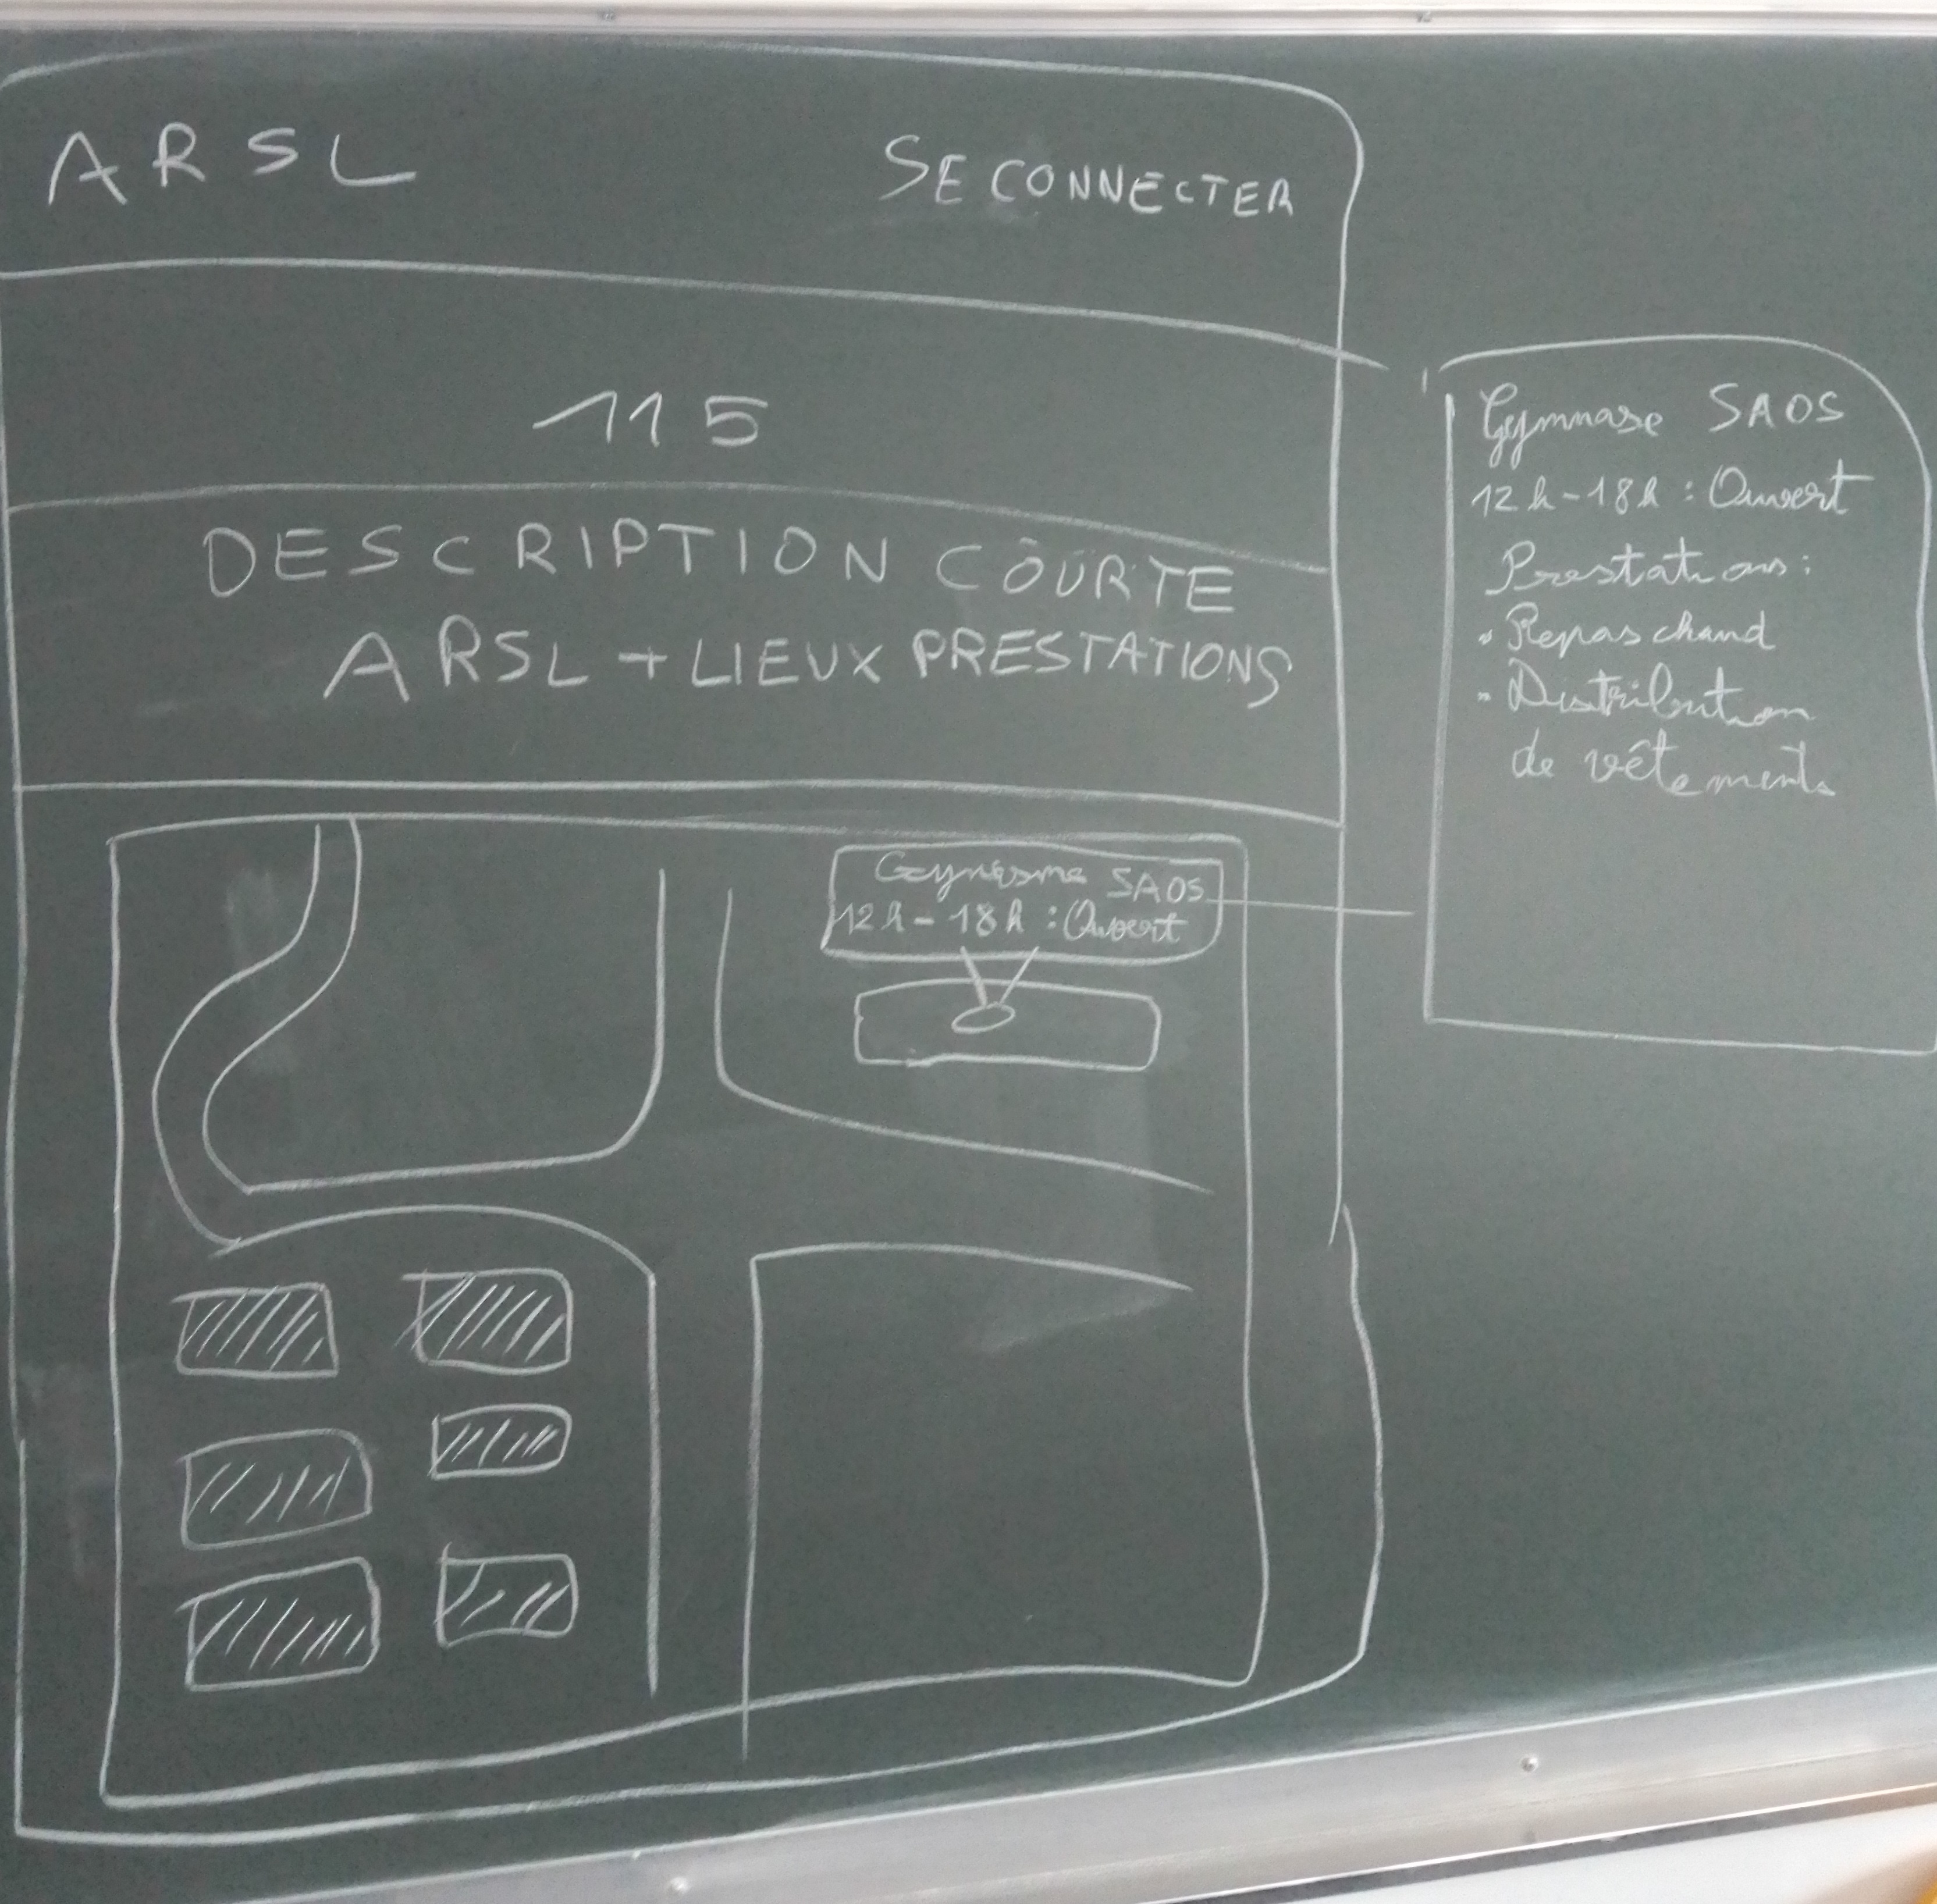 ARSL
SE CONNECTER
115
DESCRIPTION COURTE
ARSL + LIEUX PRESTATIONS
Gynasme SAOS
12h-18h : Ouvert
Gymnase SAOS
12h-18h : Ouvert
Prestations :
• Repas chaud
• Distribution
de vêtements